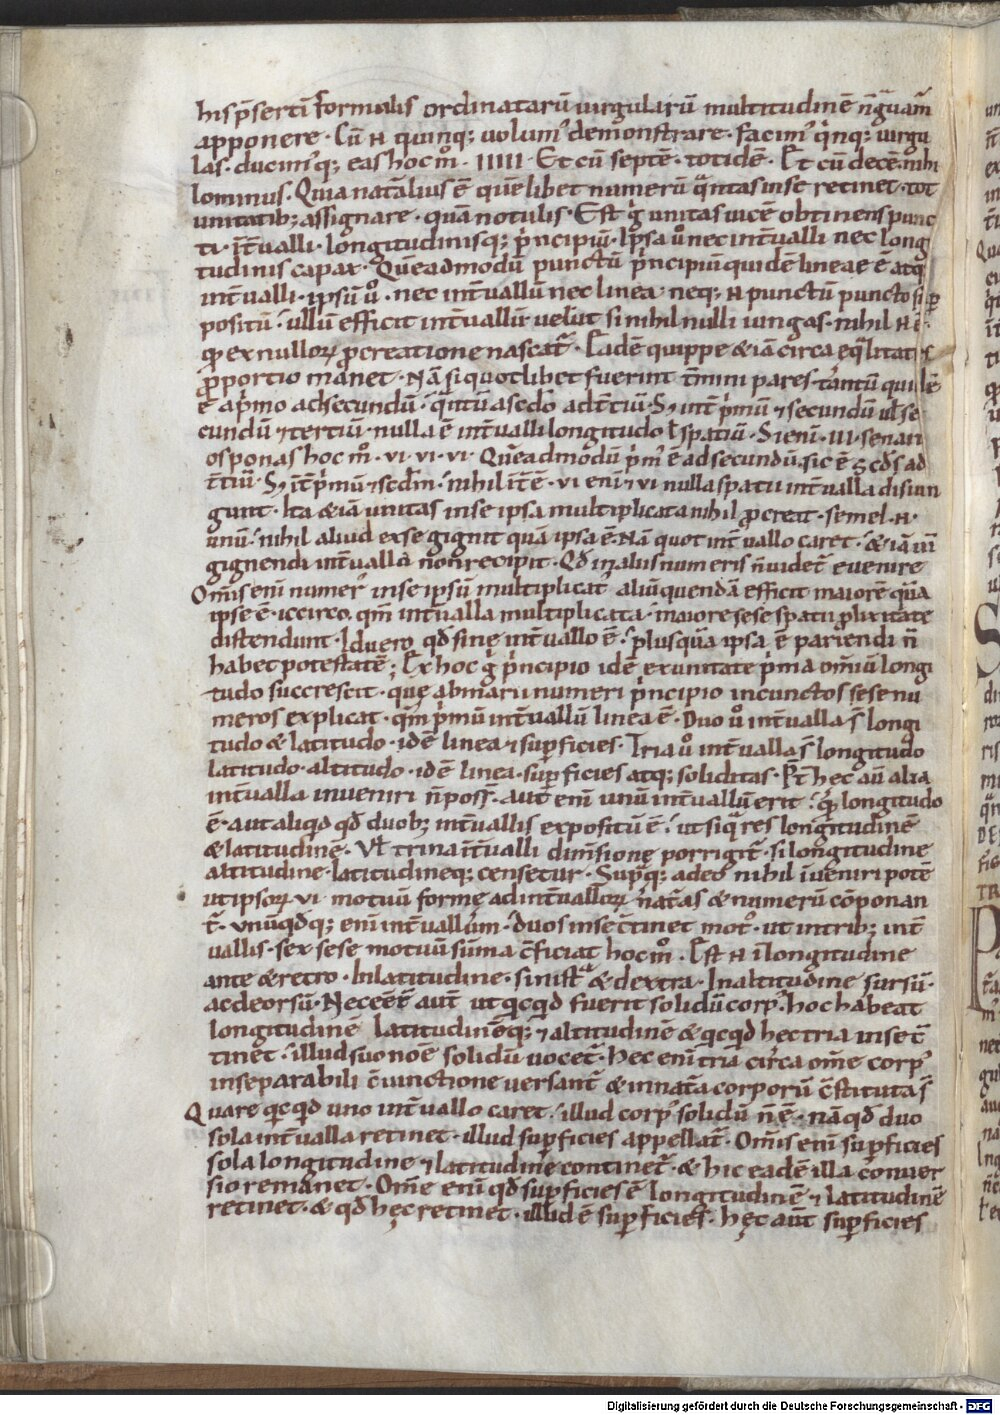 his p̄serti formalis ordinatarū uirgularū multitudinē n̄ g̊uam̄
apponere · Cū н quinq; uolum᷒ demonstrare · facim᷒ q̓nq; uirgu
las · ducim᷒q; eas hoc m̊ · IIIII · Et cū septē · totidē · Et cū decē · nihi
lominus · Quia natalius ē quēlibet numerū q̃ntas in se retinet · tot
unitatib; assignare · quā notulis · Est g̓ unitas uicē obtinens punc
ti · īt̄ualli · longitudinisq; p̓ncipiū · Ipsa ů nec int̄ualli nec long
tudinis capax · Quēadmodū punctū p̓ncipiū quidē lineae ē atq
int̄ualli · ipsū ů · nec int̄uallū nec linea · neq; н punctū puncto sup
positū · ullū efficit int̄uallū · uelut si nihil nulli iungas · nihil н ē ·
qđ ex nulloꝝ ꝓcreatione nascat᷒ · Eadē quippe & iā circa eq̃litates
ꝓportio manet · Nā si quotlibet fuerint t̄mini pares · tantū quidē
ē a p̓mo ad secundū · q̃ntū a sc̄do ad t̄tiū · S; int̄ p̓mū ⁊ secundū ul̄ se
cundū ⁊ tertiū · nulla ē int̄ualli longitudo ł spatiū · Si eni · III · senari
os ponas hoc m̊ · VI · VI · VI · Quēadmodū p̓m᷒ ē ad secundū · sic ē sc̄ds ad
t̄tiū · S; īt̄ p̓mū ⁊ sc̄dm̄ · nihil īt̄ ē · VI eni ⁊ VI nulla spatii int̄ualla disiun
gunt · Ita & iā unitas in se ipsa multiplicata nihil ꝓcreat · semel · н ·
unū · nihil aliud ex se gignit quā ipsa ē · Nā quot int̄uallo caret · & iā uī
gignendi int̄ualla non recipit · Qđ in aliis numeris n̄ uidet᷒ euenire
Om̄is eni numer᷒ in se ipsū multiplicat᷒ aliū quendā efficit maiorē quā
ipse ē · iccirco · qm̄ int̄ualla multiplicata · maiore sese spatii plixitate
distendunt · Id uero qđ sine int̄uallo ē · plus quā ipsa ē pariendi n̄
habet potestatē ; Ex hoc g̓ p̓ncipio idē ex unitate p̓ma om̄iū longi
tudo succrescit · quę a binarii numeri p̓ncipio in cunctos sese nu
meros explicat · qm̄ p̓mū int̄uallū linea ē · Duo ů int̄ualla s̄ longi
tudo & latitudo · idē linea ⁊ supficies · Tria ů int̄ualla s̄ longitudo
latitudo · altitudo · idē linea · supficies atq; soliditas · Pt̄ hec aū alia
int̄ualla inueniri n̄ poss · aut eni unū int̄uallū erit · qđ longitudo
ē · aut aliqđ qđ duob; int̄uallis expositū ē · ut siq̃ res longitudinē
& latitudinē · Vł trina īt̄ualli dim̄sione porrigit᷒ · si longitudine
altitudine · latitudineq; censetur · Supq; adeo nihil īueniri potē
ut ipsoꝝ · VI · motuū formę ad int̄ualloꝝ nat᷒as & numerū cōponan
t᷒ · Vnūqđq; eni int̄uallum · duos in se c̄tinet mot᷒ · ut in trib; int̄
uallis · sex sese motuū sūma c̄ficiat hoc m̊ · Est н ī longitudine
ante & retro · In latitudine · sinist̃ & dextra · In altitudine sursū ·
ac deorsū · Necē ēst aut̄ ut qcqđ fuerit solidū corp᷒ · hoc habeat
longitudinē latitudinēq; ⁊ altitudinē & qcqđ hec tria in se c̄
tinet · illud suo noē solidū uocet᷒ · Hec eni tria circa om̄e corp᷒
inseparabili c̄iunctione uersant᷒ & in nat᷒a corporū c̄stituta s̄
Quare qcqđ uno int̄uallo caret · illud corp᷒ solidū n̄ ē · nā qđ duo
sola int̄ualla retinet · illud supficies appellat᷒ · Om̄is eni supficies
sola longitudine ⁊ latitudine continet᷒ · & hic eadē illa conuer
sio remanet · Om̄e eni qđ supficies ē longitudinē ⁊ latitudinē
retinet · & qđ hęc retinet · illud ē supficies · hęc aut̄ supficies
Digitalisierung gefördert durch die Deutsche Forschungsgemeinschaft - DFG